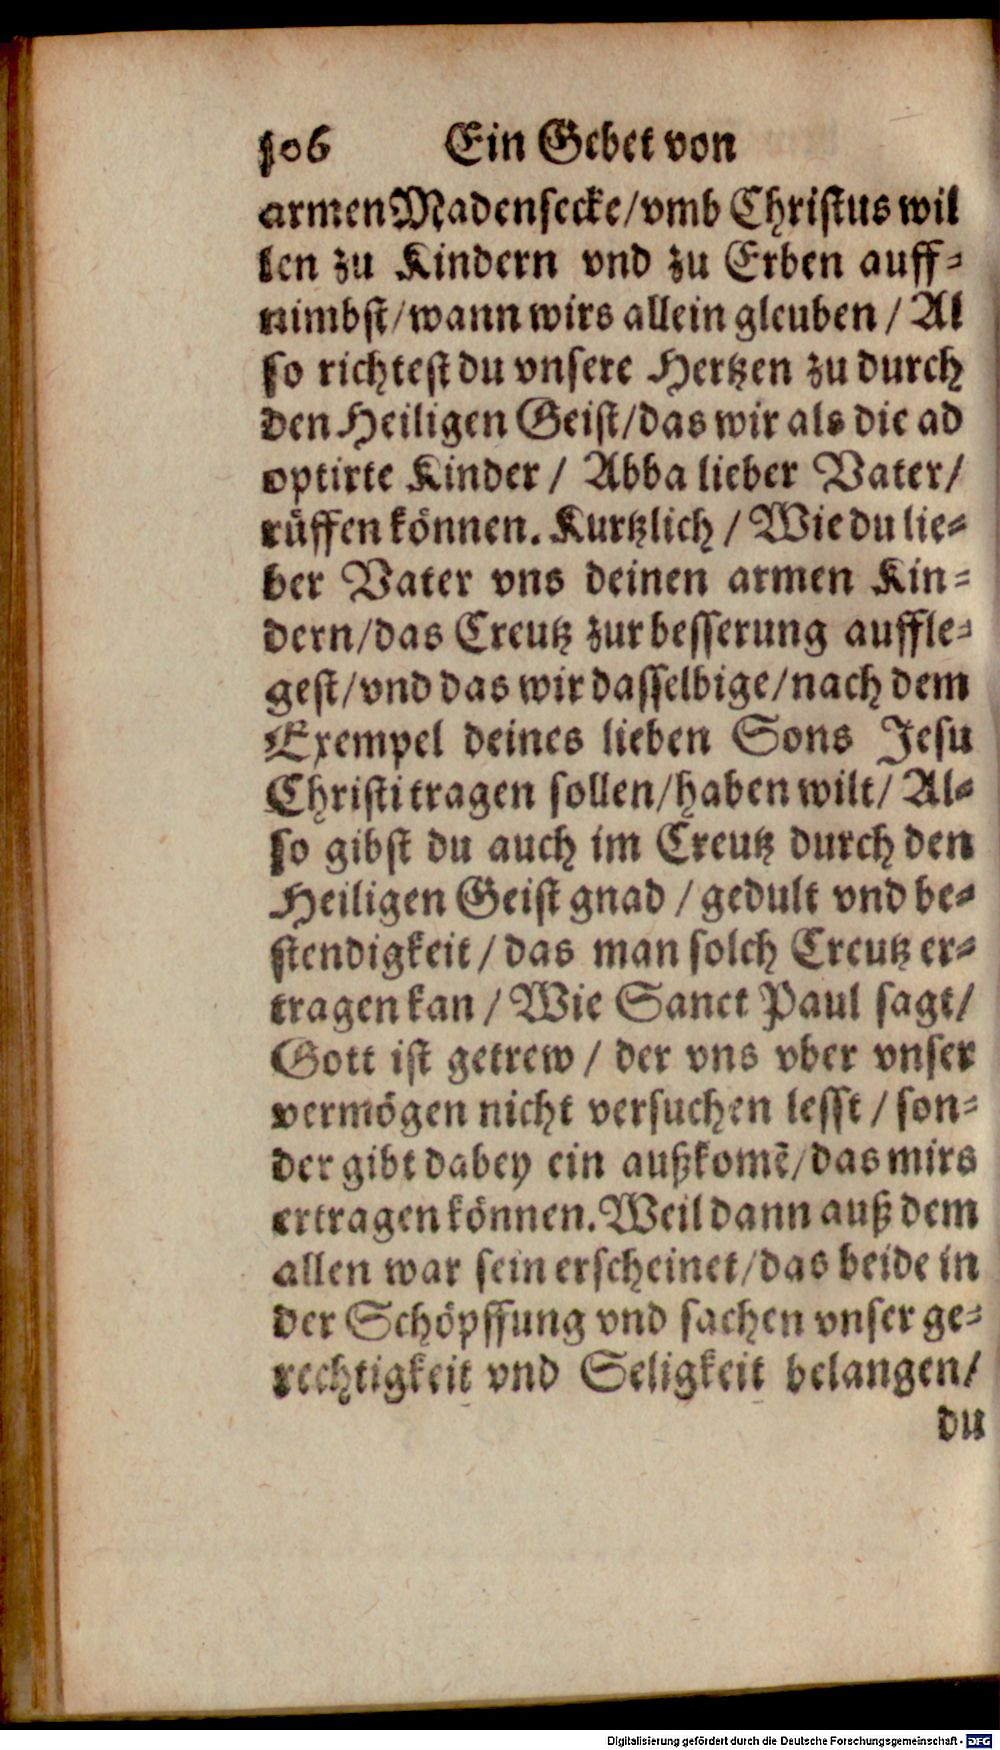 106 Ein Gebet von
armen Madensecke/vmb Christus wil
len zu Kindern vnd zu Erben auff-
nimbst/wann wirs allein gleuben / Al
so richtest du vnsere Hertzen zu durch
den Heiligen Geist/das wir als die ad
optirte Kinder / Abba lieber Vater/
rüffen können. Kurtzlich / Wie du lie-
ber Vater vns deinen armen Kin-
dern/das Creutz zur besserung auffle-
gest/vnd das wir dasselbige/nach dem
Exempel deines lieben Sons Jesu
Christi tragen sollen/haben wilt/ Al-
so gibst du auch im Creutz durch den
Heiligen Geist gnad / gedult vnd be-
stendigkeit / das man solch Creutz er-
tragen kan / Wie Sanct Paul sagt/
Gott ist getrew / der vns vber vnser
vermögen nicht versuchen lesst / son-
der gibt dabey ein außkomẽ/das mirs
ertragen können. Weil dann auß dem
allen war sein erscheinet/das beide in
der Schöpffung vnd sachen vnser ge-
rechtigkeit vnd Seligkeit belangen/
du
Digitalisierung gefördert durch die Deutsche Forschungsgemeinschaft - DFG